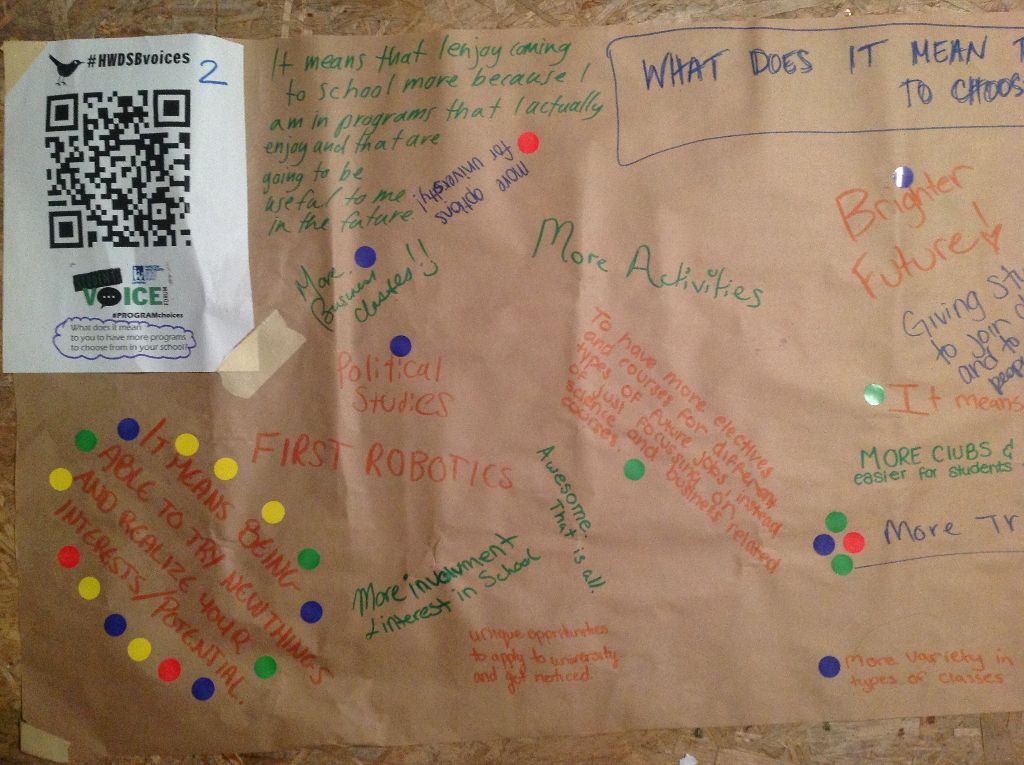 #HWDSBvoices
2
VOICE
#PROGRAMchoices
What does it mean
to you to have more programs
to choose from in your school?
It means that I enjoy coming
to school more because I
am in programs that I actually
enjoy and that are
going to be
useful to me
in the future
more options
for university!
WHAT DOES IT MEAN T
TO CHOOS
More
Business
classes!!
More Activities
Brighter
Future!
Giving Stu
to join c
and to
peop
Political
Studies
To have more electives
and courses for different
types of future jobs instead
of just focusing on
science and business related
courses.
It means
MORE CLUBS &
easier for students
FIRST ROBOTICS
IT MEANS BEING
ABLE TO TRY NEW THINGS
AND REALIZE YOUR
INTERESTS/POTENTIAL.
Awesome.
That is all.
More Tr
More involvment
& interest in School
unique opportunities
to apply to university
and get noticed.
More variety in
types of classes